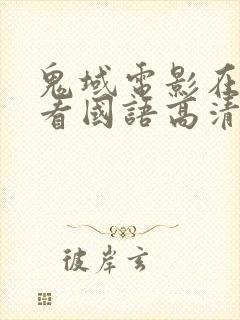 鬼域電影在
看國語高清
彼岸玄